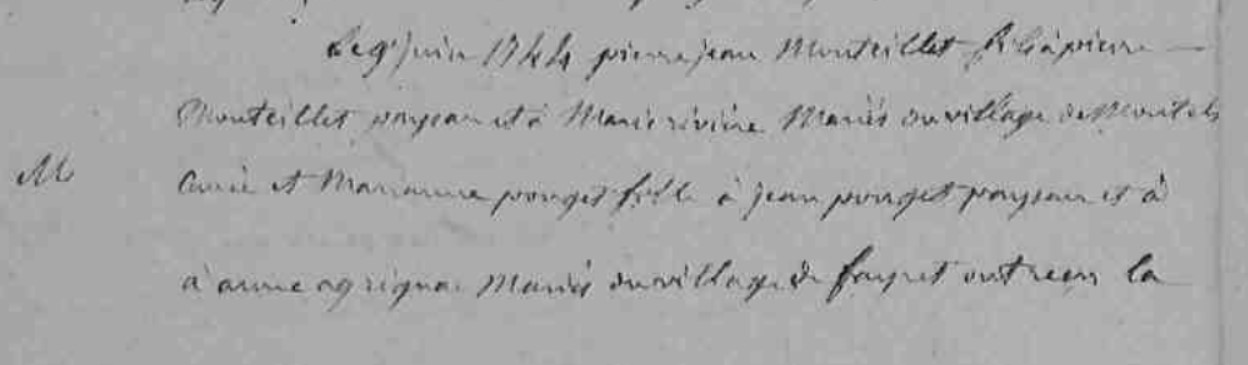 Le 9 juin 1744 pierre jean Monteillet fils à pierre
Monteillet paysan et à Marie rivière Mariés du village de Montels
M Curie et Marianne pouget fille à jean pouget paysan et à
à anne agrignac Mariés du village de fayet ont reçu la